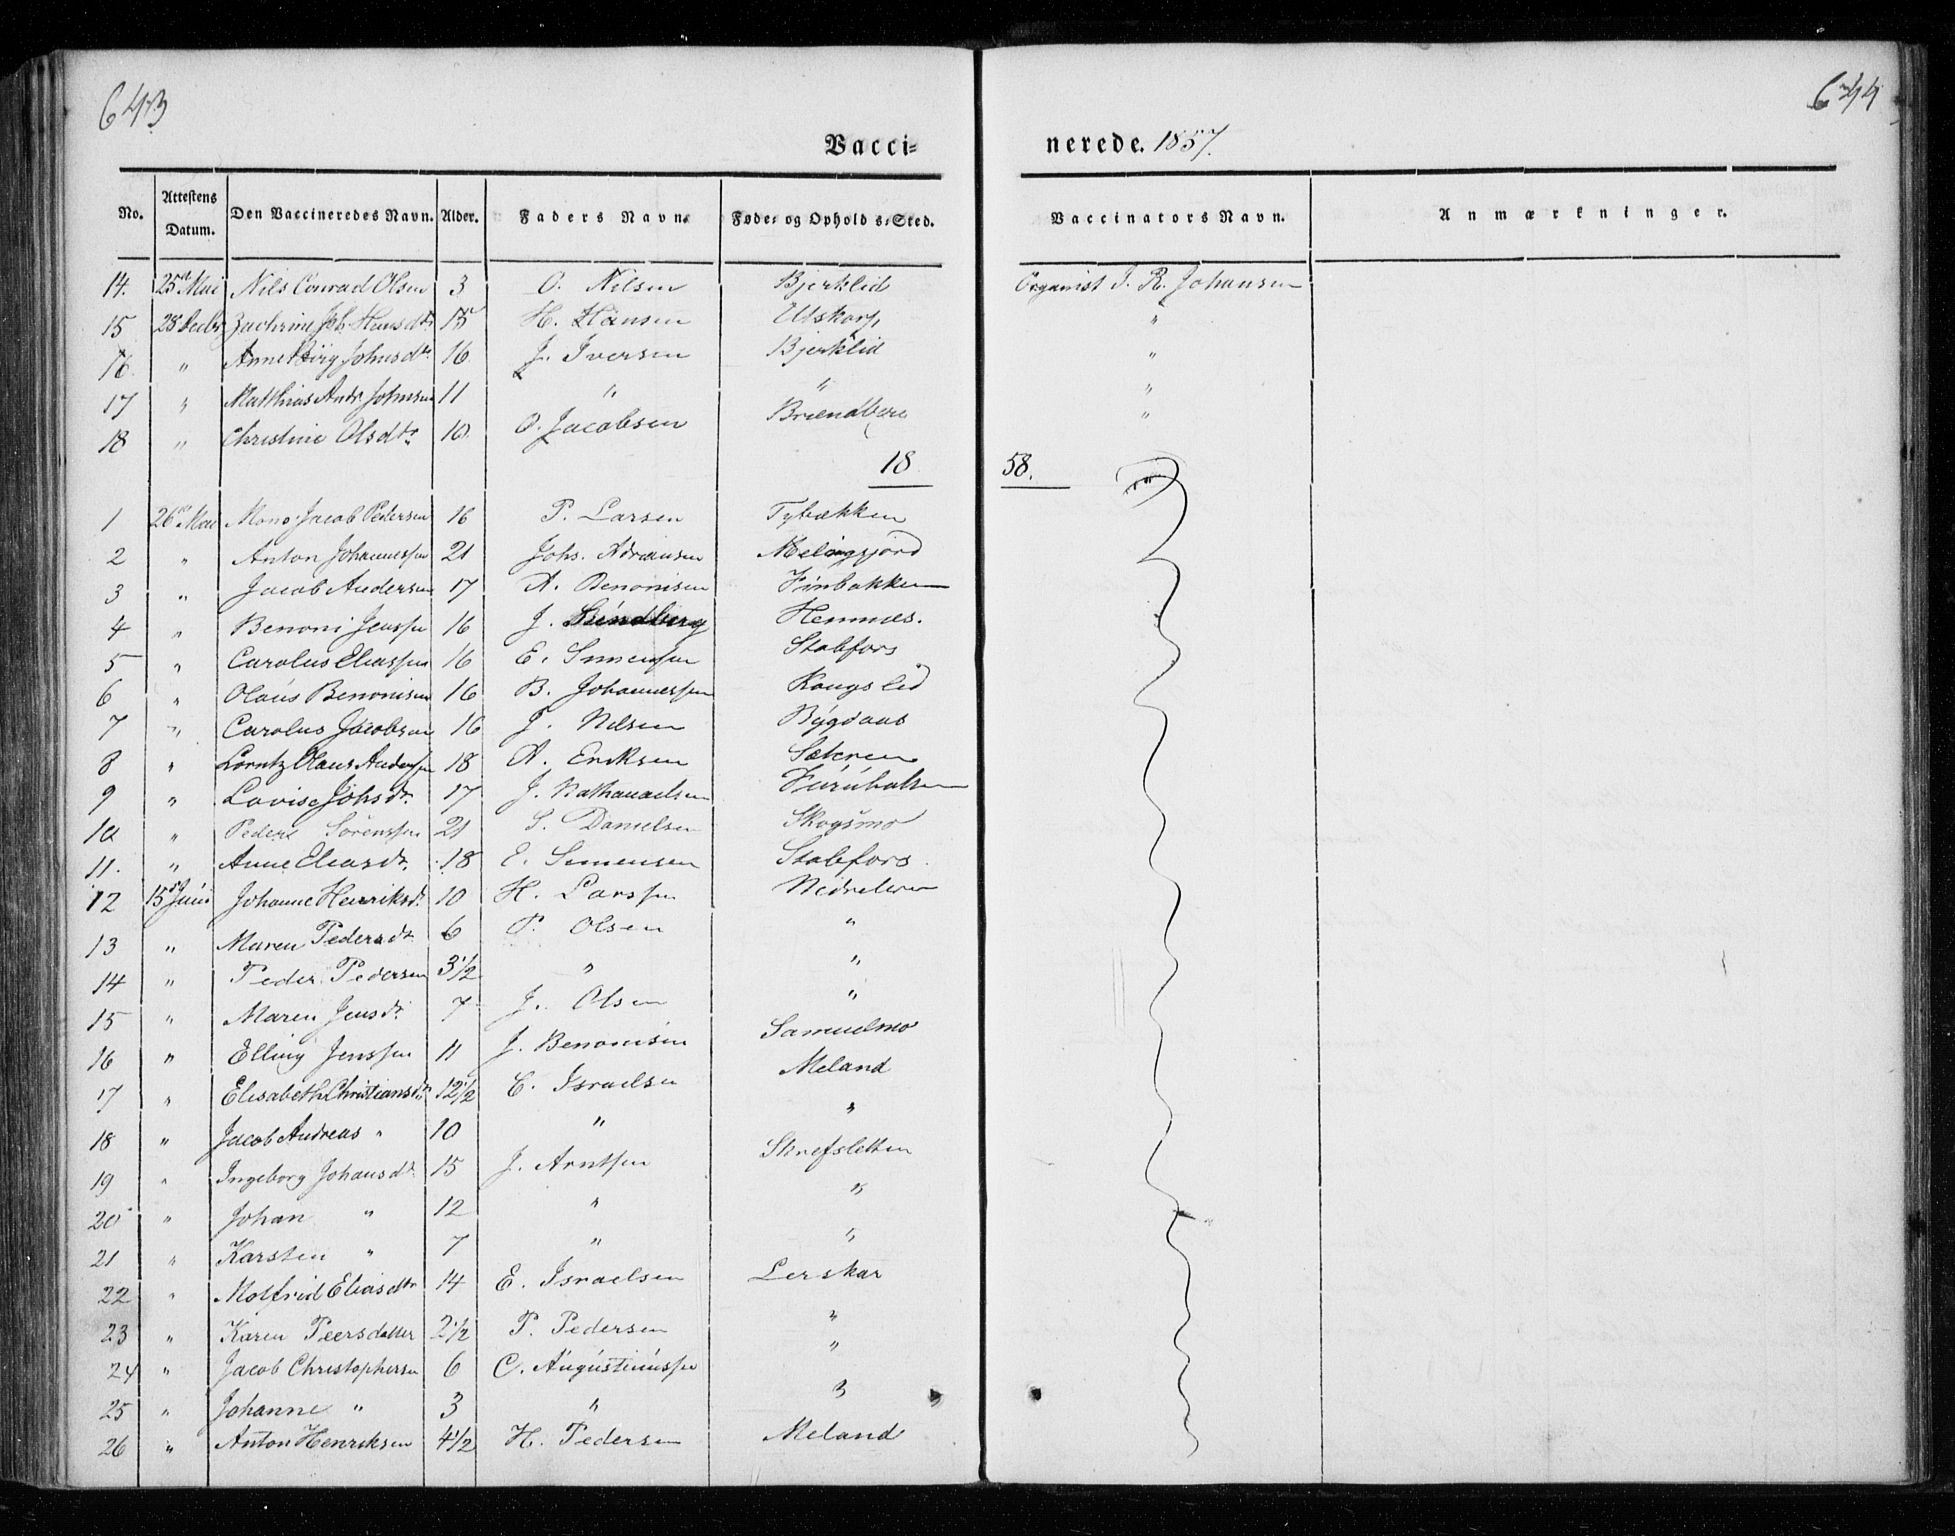 643
644
Vacci-
nerede. 1857.
No. Attestens Datum. Den Vaccineredes Navn. Alder. Faders Navn. Føde- og Opholds-Sted. Vaccinators Navn. Anmærkninger.
14. 25 Mai Nils Conrad Olsen 3 O. Nilsen Bjerklid Organist J. R. Johansen
15 28 Decbr 15 H. Hansen Utskarp "
16 " Anne Birg Johnsdtr 16 J. Iversen Bjerklid "
17 " Matthias Andr. Johnsen 11 " " "
18 " Christine Olsdtr 10 O. Jacobsen "
18 58.
1 26 Mai Mons Jacob Pedersen 16 P. Larsen Tybækken
2 " Anton Johannessen 21 Johs. Adriansen
3 " Jacob Andersen 17 A. Benonisen Finbakken
4 " Benoni Jenssen 16 J. Hemnes.
5 " Carolus Eliassen 16 E. Simensen Stabfors
6 " Olaus Benonisen 16 B. Johannessen Kongslid
7 " Carolus Jacobsen 16 J. Nilsen Bygdaas
8 " Lorntz Olaus Andersen 18 A. Eriksen Sæteren
9 " Lovise Johsdt. 17 J. Nathanaelsen
10 " Peder Sørenssen 21 S. Danielsen Skogsmo
11. " Anne Eliasdt. 18 E. Simensen Stabfors
12 15 Juni Johanne Henriksdt. 10 H. Larssen
13 " Maren Pedersdt. 6 P. Olsen "
14 " Peder Pedersen 3 1/2 " "
15 " Maren Jensdt. 7 J. Olsen "
16 " Elling Jenssen 11 J. Benonisen Samuelmo
17 " Elisabeth Christiansdt. 12 1/2 C. Israelsen Meland
18 " Jacob Andreas " 10 " "
19 " Ingeborg Johansdt. 15 J. Arntsen Skrefsletten
20 " Johan " 12 " "
21 " Karsten " 7 " "
22 " Molfrid Eliasdtr 14 E. Israelsen Lerskar
23 " Karen Peersdatter 2 1/2 P. Pedersen "
24 " Jacob Christophersen 6 C. Augustinussen "
25 " Johanne " 3 " "
26 " Anton Henriksen 4 1/2 H. Pedersen Meland